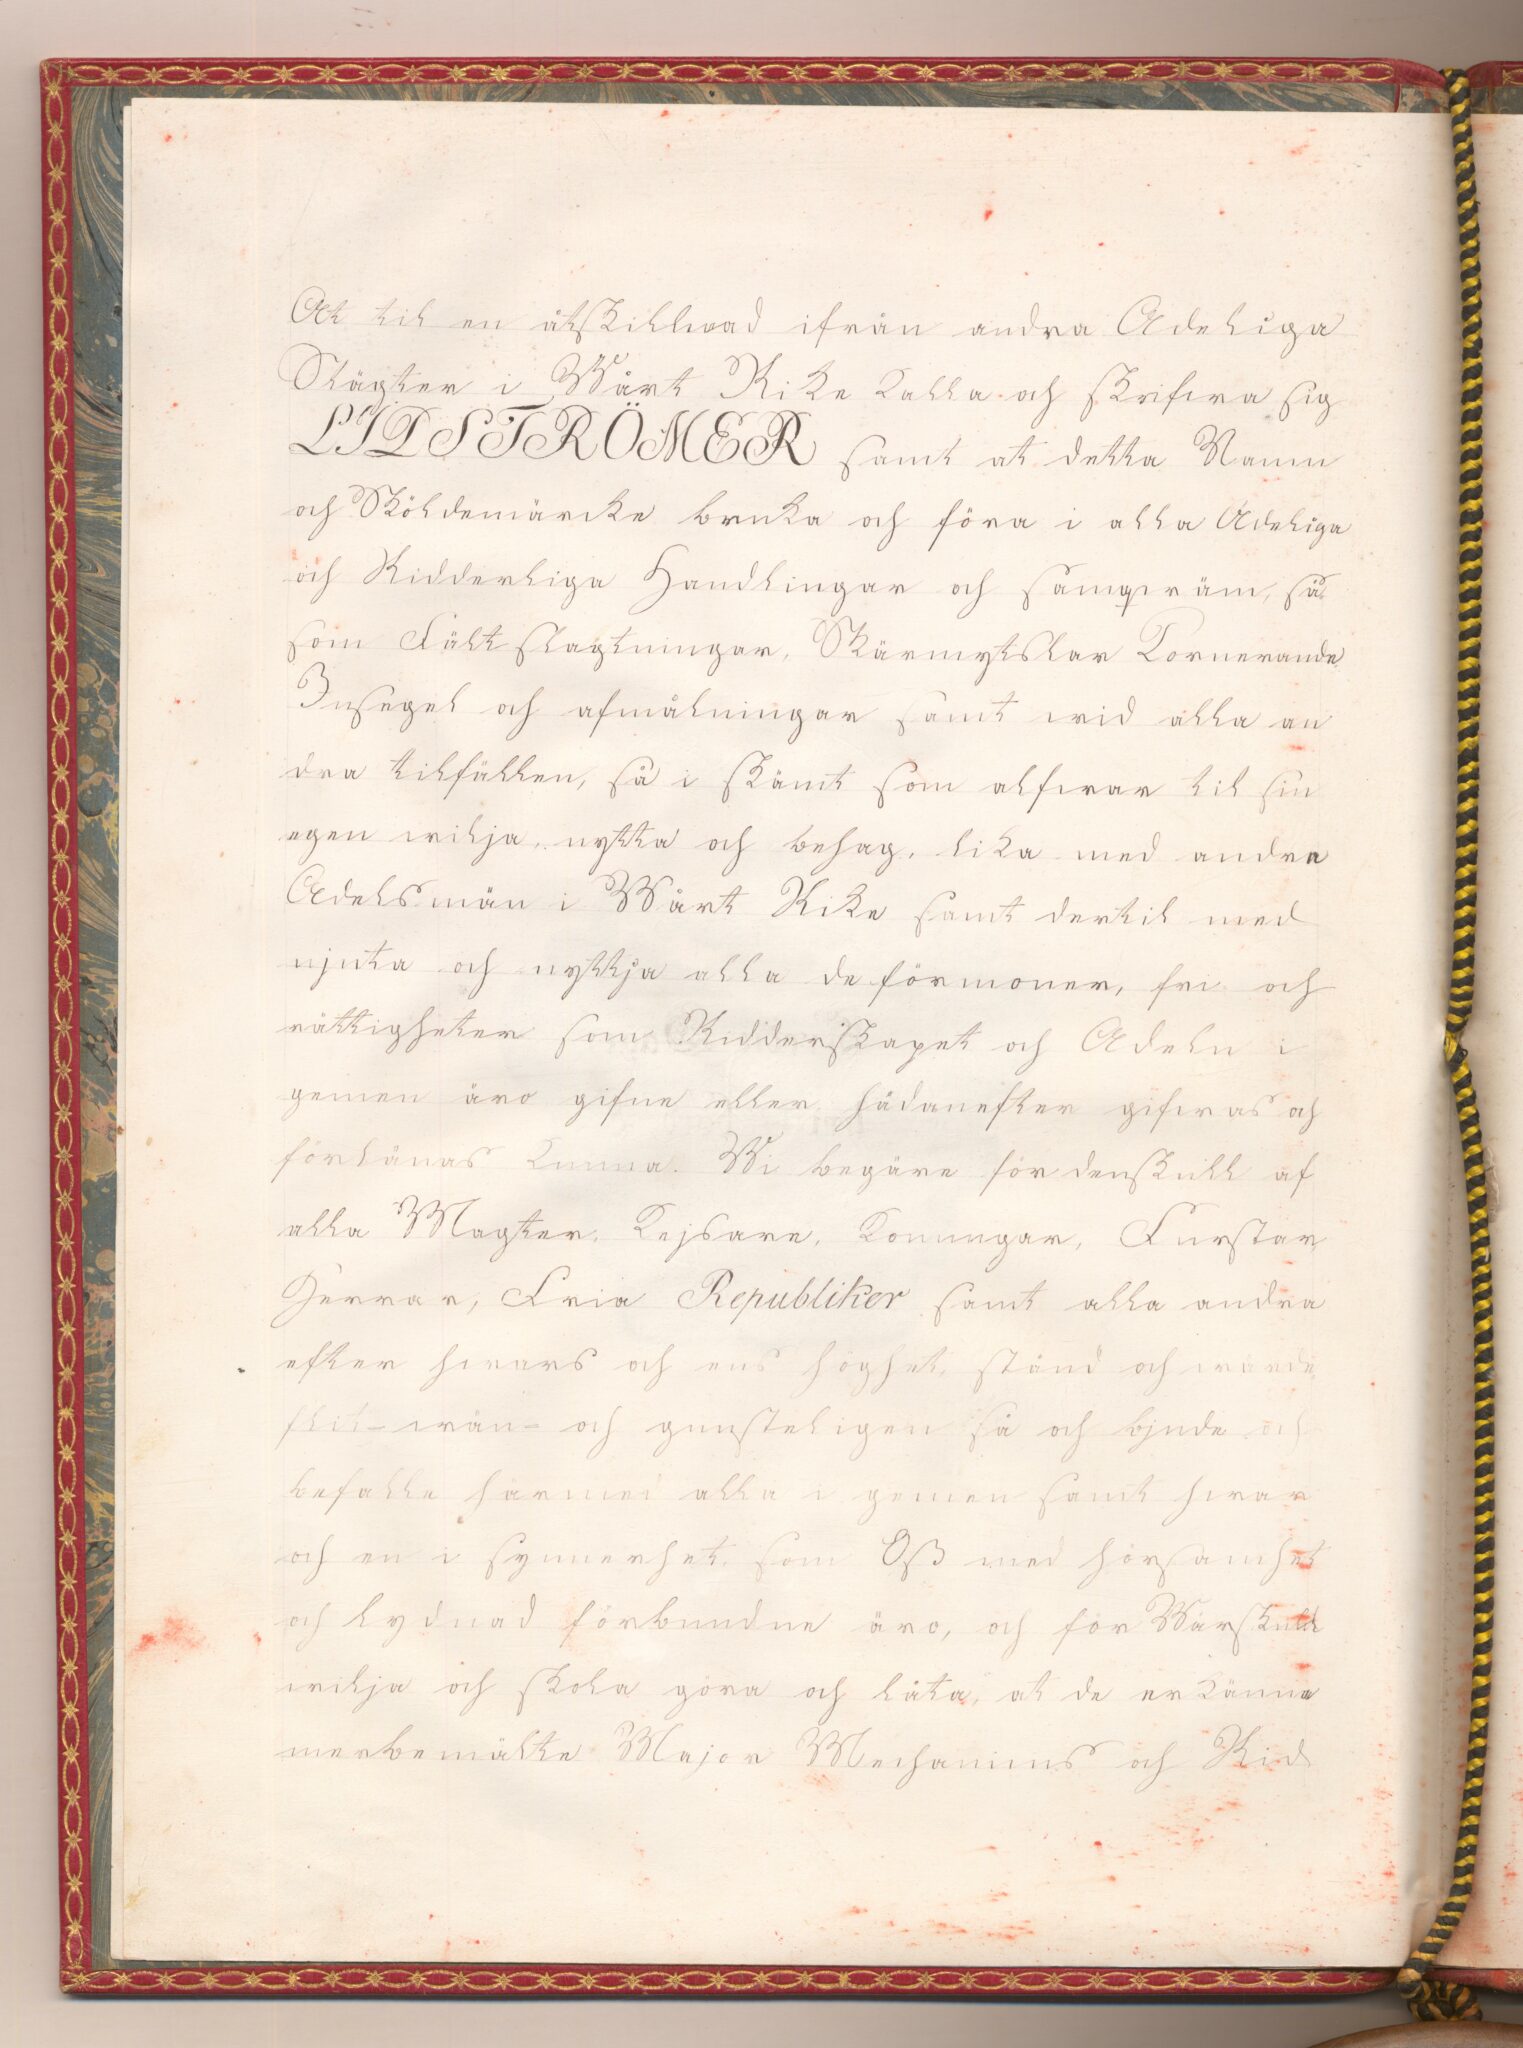 At til en åtskillnad ifrån andra Adeliga
Slägter i Wårt Rike kalla och skrifwa sig
LIDSTRÖMER samt at detta Namn
och Sköldemärcke bruka och föra i alla Adeliga
och Ridderliga Handlingar och samqwäm, så
som Fältslagtningar, Skärmytslar Tornerande
Insegel och afmålningar samt wid alla an
dra tilfällen, så i skämt som alfwar til sin
egen wilja, nytta och behag, lika med andra
Adelsmän i Wårt Rike samt dertil med
njuta och nyttja alla de förmoner, fri och
rättigheter som Ridderskapet och Adeln i
gemen äro gifne eller hädanefter gifwas och
förlänas kunna. Wi begäre för denskull af
alla Magter, Kejsare, Konungar, Furstar
Herrar, Fria Republiker samt alla andra
efter hwars och ens höghet, stånd och wärde
flit- wän- och gunsteligen så och bjude och
befalle härmed alla i gemen samt hwar
och en i synnerhet, som Oß med hörsamhet
och lydnad förbundne äro, och för Wårskull
wilja och skola göra och låta, at de erkänna
merbemälte Major Mechanicus och Rid